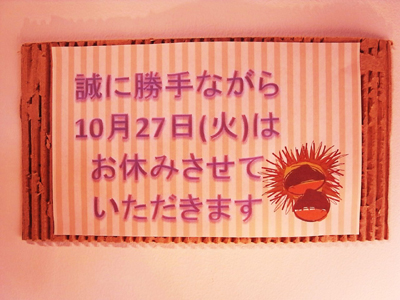 誠に勝手ながら
10月27日(火)は
お休みさせて
いただきます